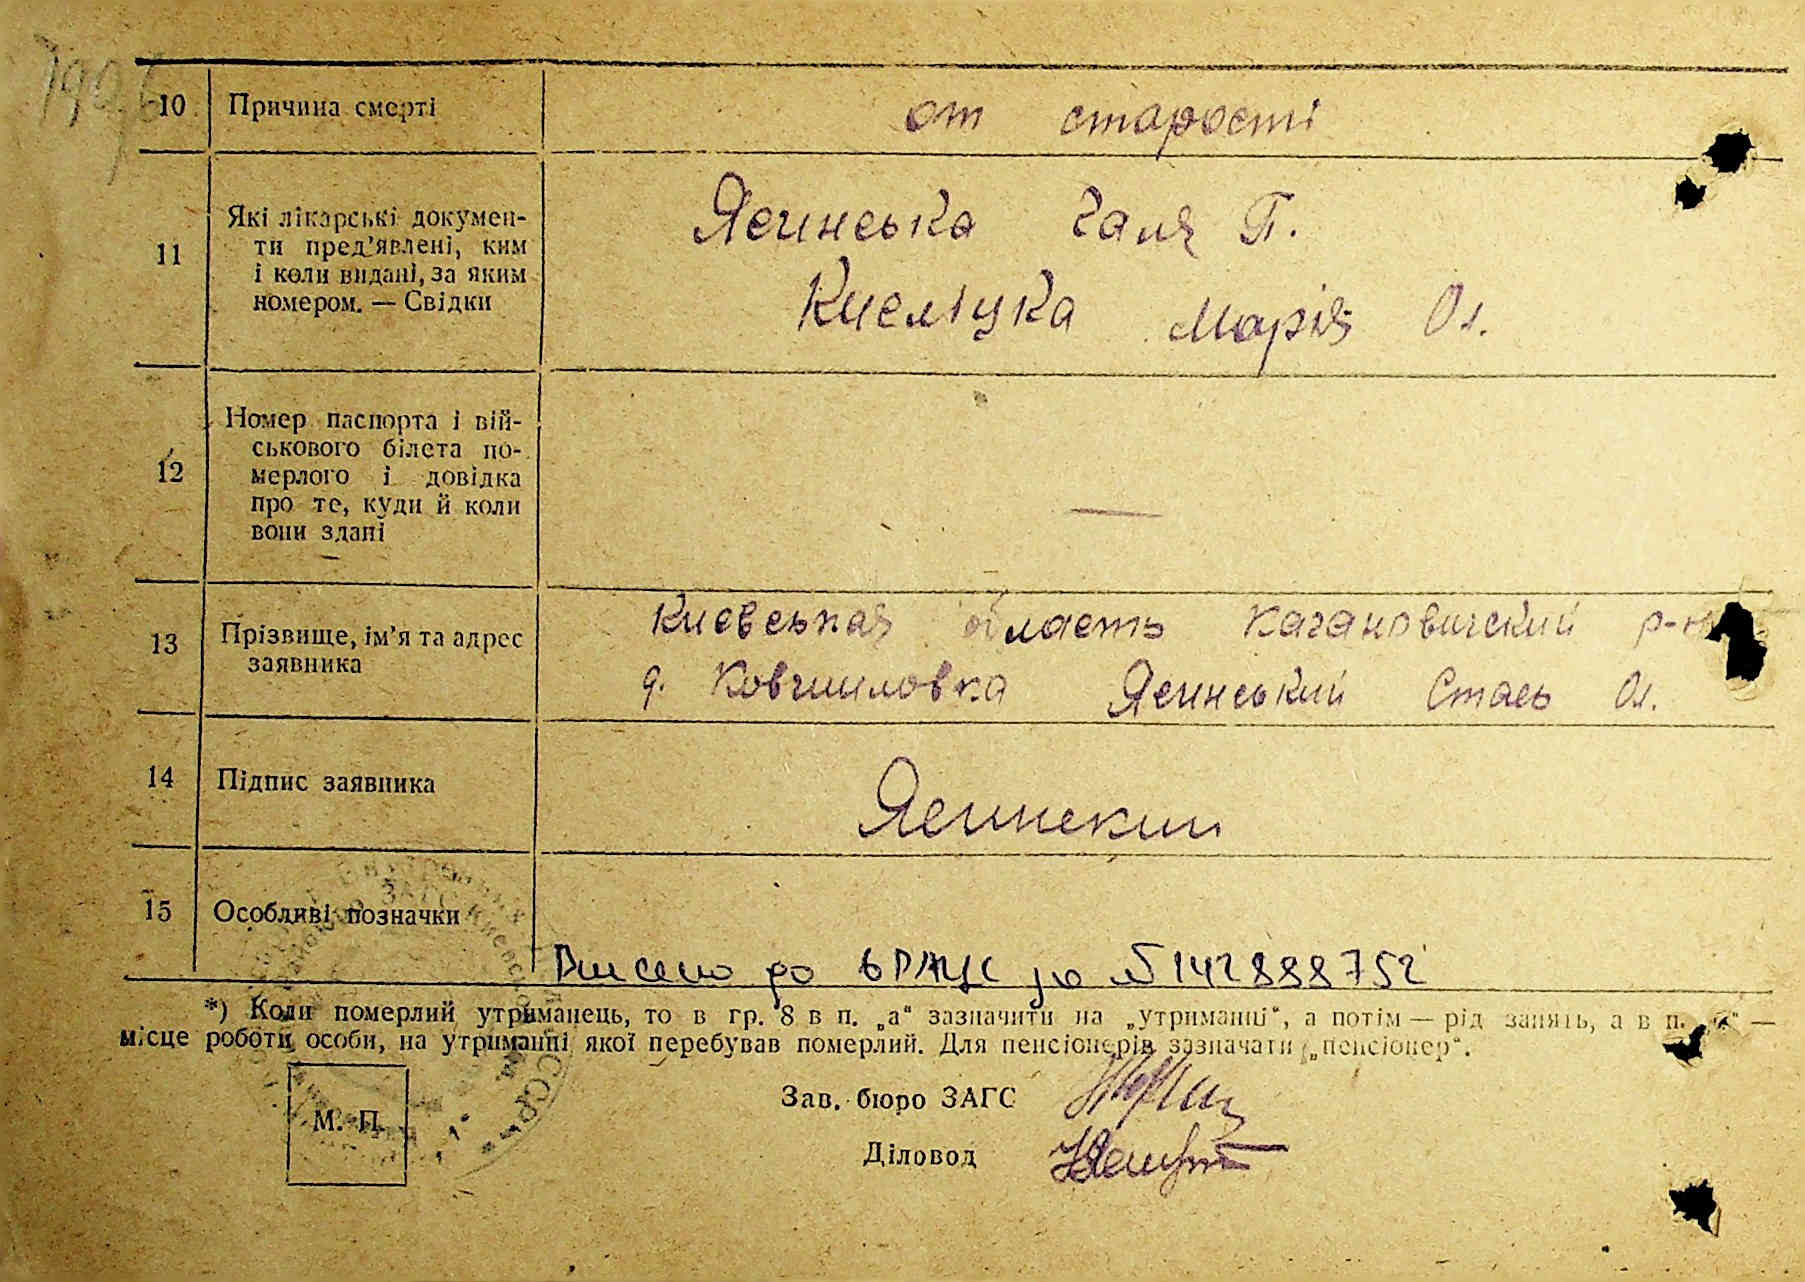 10 Причина смерті от старості
11 Які лікарські докумен-
ти пред’явлені, ким
і коли видані, за яким
номером. — Свідки
Ясинська Галя П.
Кисліцка Марія Ол.
12 Номер паспорта і вій-
ськового білета по-
мерлого і довідка
про те, куди й коли
вони здані
—
13 Прізвище, ім’я та адрес
заявника
Киевськая область Кагановичский р-н
д. Ковшиловка Ясинський Стась Ол.
14 Підпис заявника Ясинский
15 Особливі позначки
Внесено до ДРАЦС за №142888752
*) Коли померлий утриманець, то в гр. 8 в п. „а“ зазначити на „утриманні“, а потім — рід занять, а в п. —
місце роботи особи, на утриманні якої перебував померлий. Для пенсіонерів зазначати „пенсіонер“.
М. П.
Зав. бюро ЗАГС
Діловод